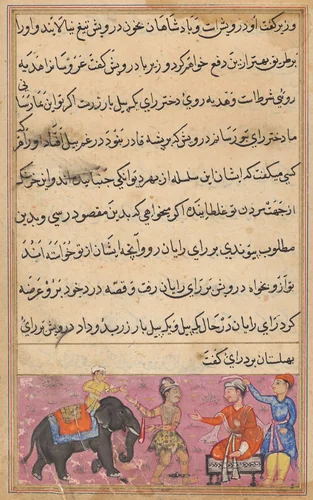 وزیر گفت او درویش است و پادشاهان بخون درویش تیغ نیالایند و او را
بر طریق بهتر ازین دفع خواهم کرد وزیر با درویش گفت عروسانرا هدیه
روی شرط است و هدیه روی دختر رای یک پیل بار زرست اگر تو این بیاری
ما دختر رای بتو رسانیم درویش که بر پشه قادر نبود در غم پیل افتاد و از هر
کسی میگفت که ایشان این سلسله از بهر دیوانگی جنبانیده اند و این خرک
از جهت مردن تو غلطانیده اگر میخواهی که بدین مقصود رسی و بدین
مطلوب پیوندی بر رای رایان رو و آنچه ایشان از تو خواسته اند
تو از و بخواه درویش بر رای رایان رفت و قصه درد خود برو عرضه
کرد رای رایان در حال یک پیل و یک پیل بار زر بدو داد درویش بر رای
بهلستان برد رای گفت